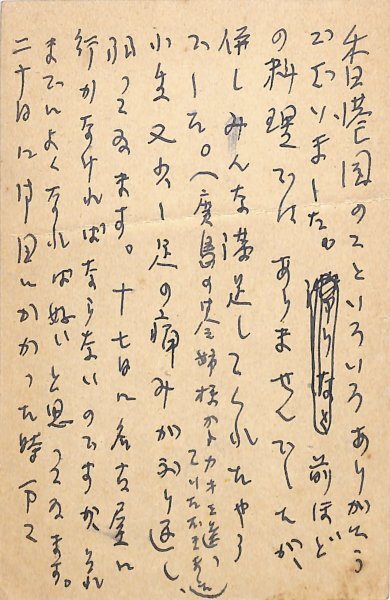 香港園のこといろいろありがとう
ございました。前ほど
の料理ではありませんでしたが、
併しみんな満足してくれたやう
でした。(廣島の姉様がカキを送
っていただきました)
小生又少し足の痛みがぶり返し、
弱ってゐます。十七日に名古屋に
行かなければならないのですが、それ
までによくなれば好いと思ってゐます。
二十日にお目にかかった時